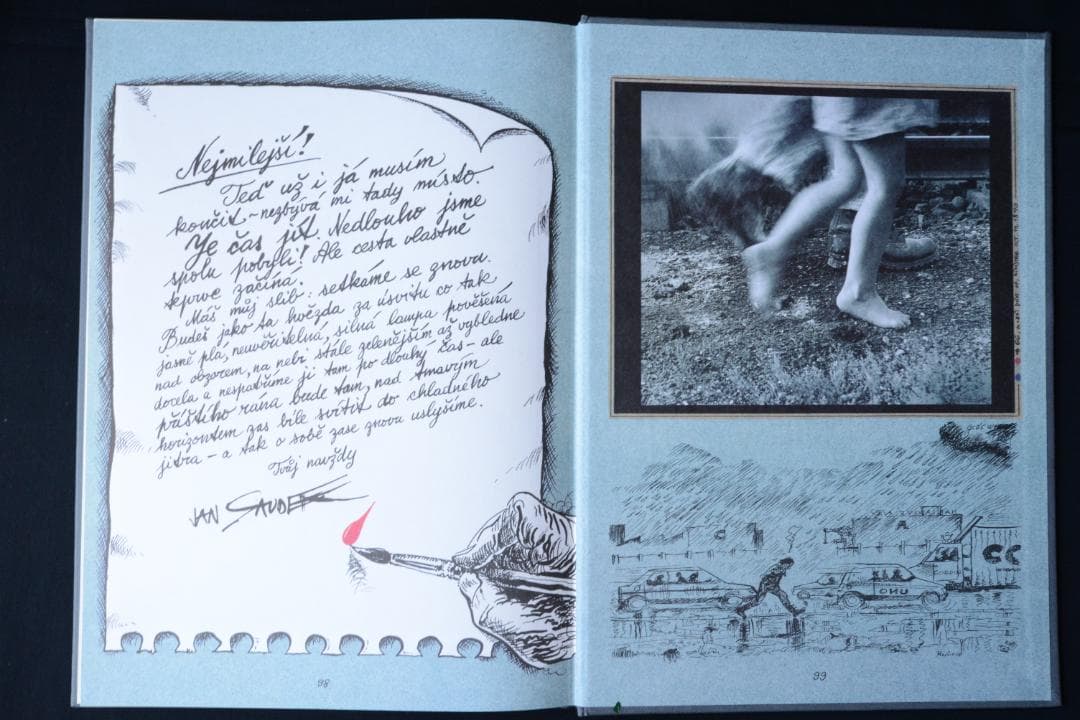 Nejmilejší!
Teď už i já musím
končit – nezbývá mi tady místo.
Je čas jít. Nedlouho jsme
spolu pobyli! Ale cesta vlastně
teprve začíná.
Máš můj slib: setkáme se znova.
Budeš jako ta hvězda za úsvitu co tak
jasně plá, neuvěřitelná, silná lampa pověšená
nad obzorem, na nebi stále zelenějším až vybledne
docela a nespatříme ji tam po dlouhý čas – ale
příštího rána bude tam, nad tmavým
horizontem zas bíle svítit do chladného
jitra – a tak o sobě zase znova uslyšíme.
Tvůj navždy
JAN SAUDEK
98
C
A
CC
ONU
99